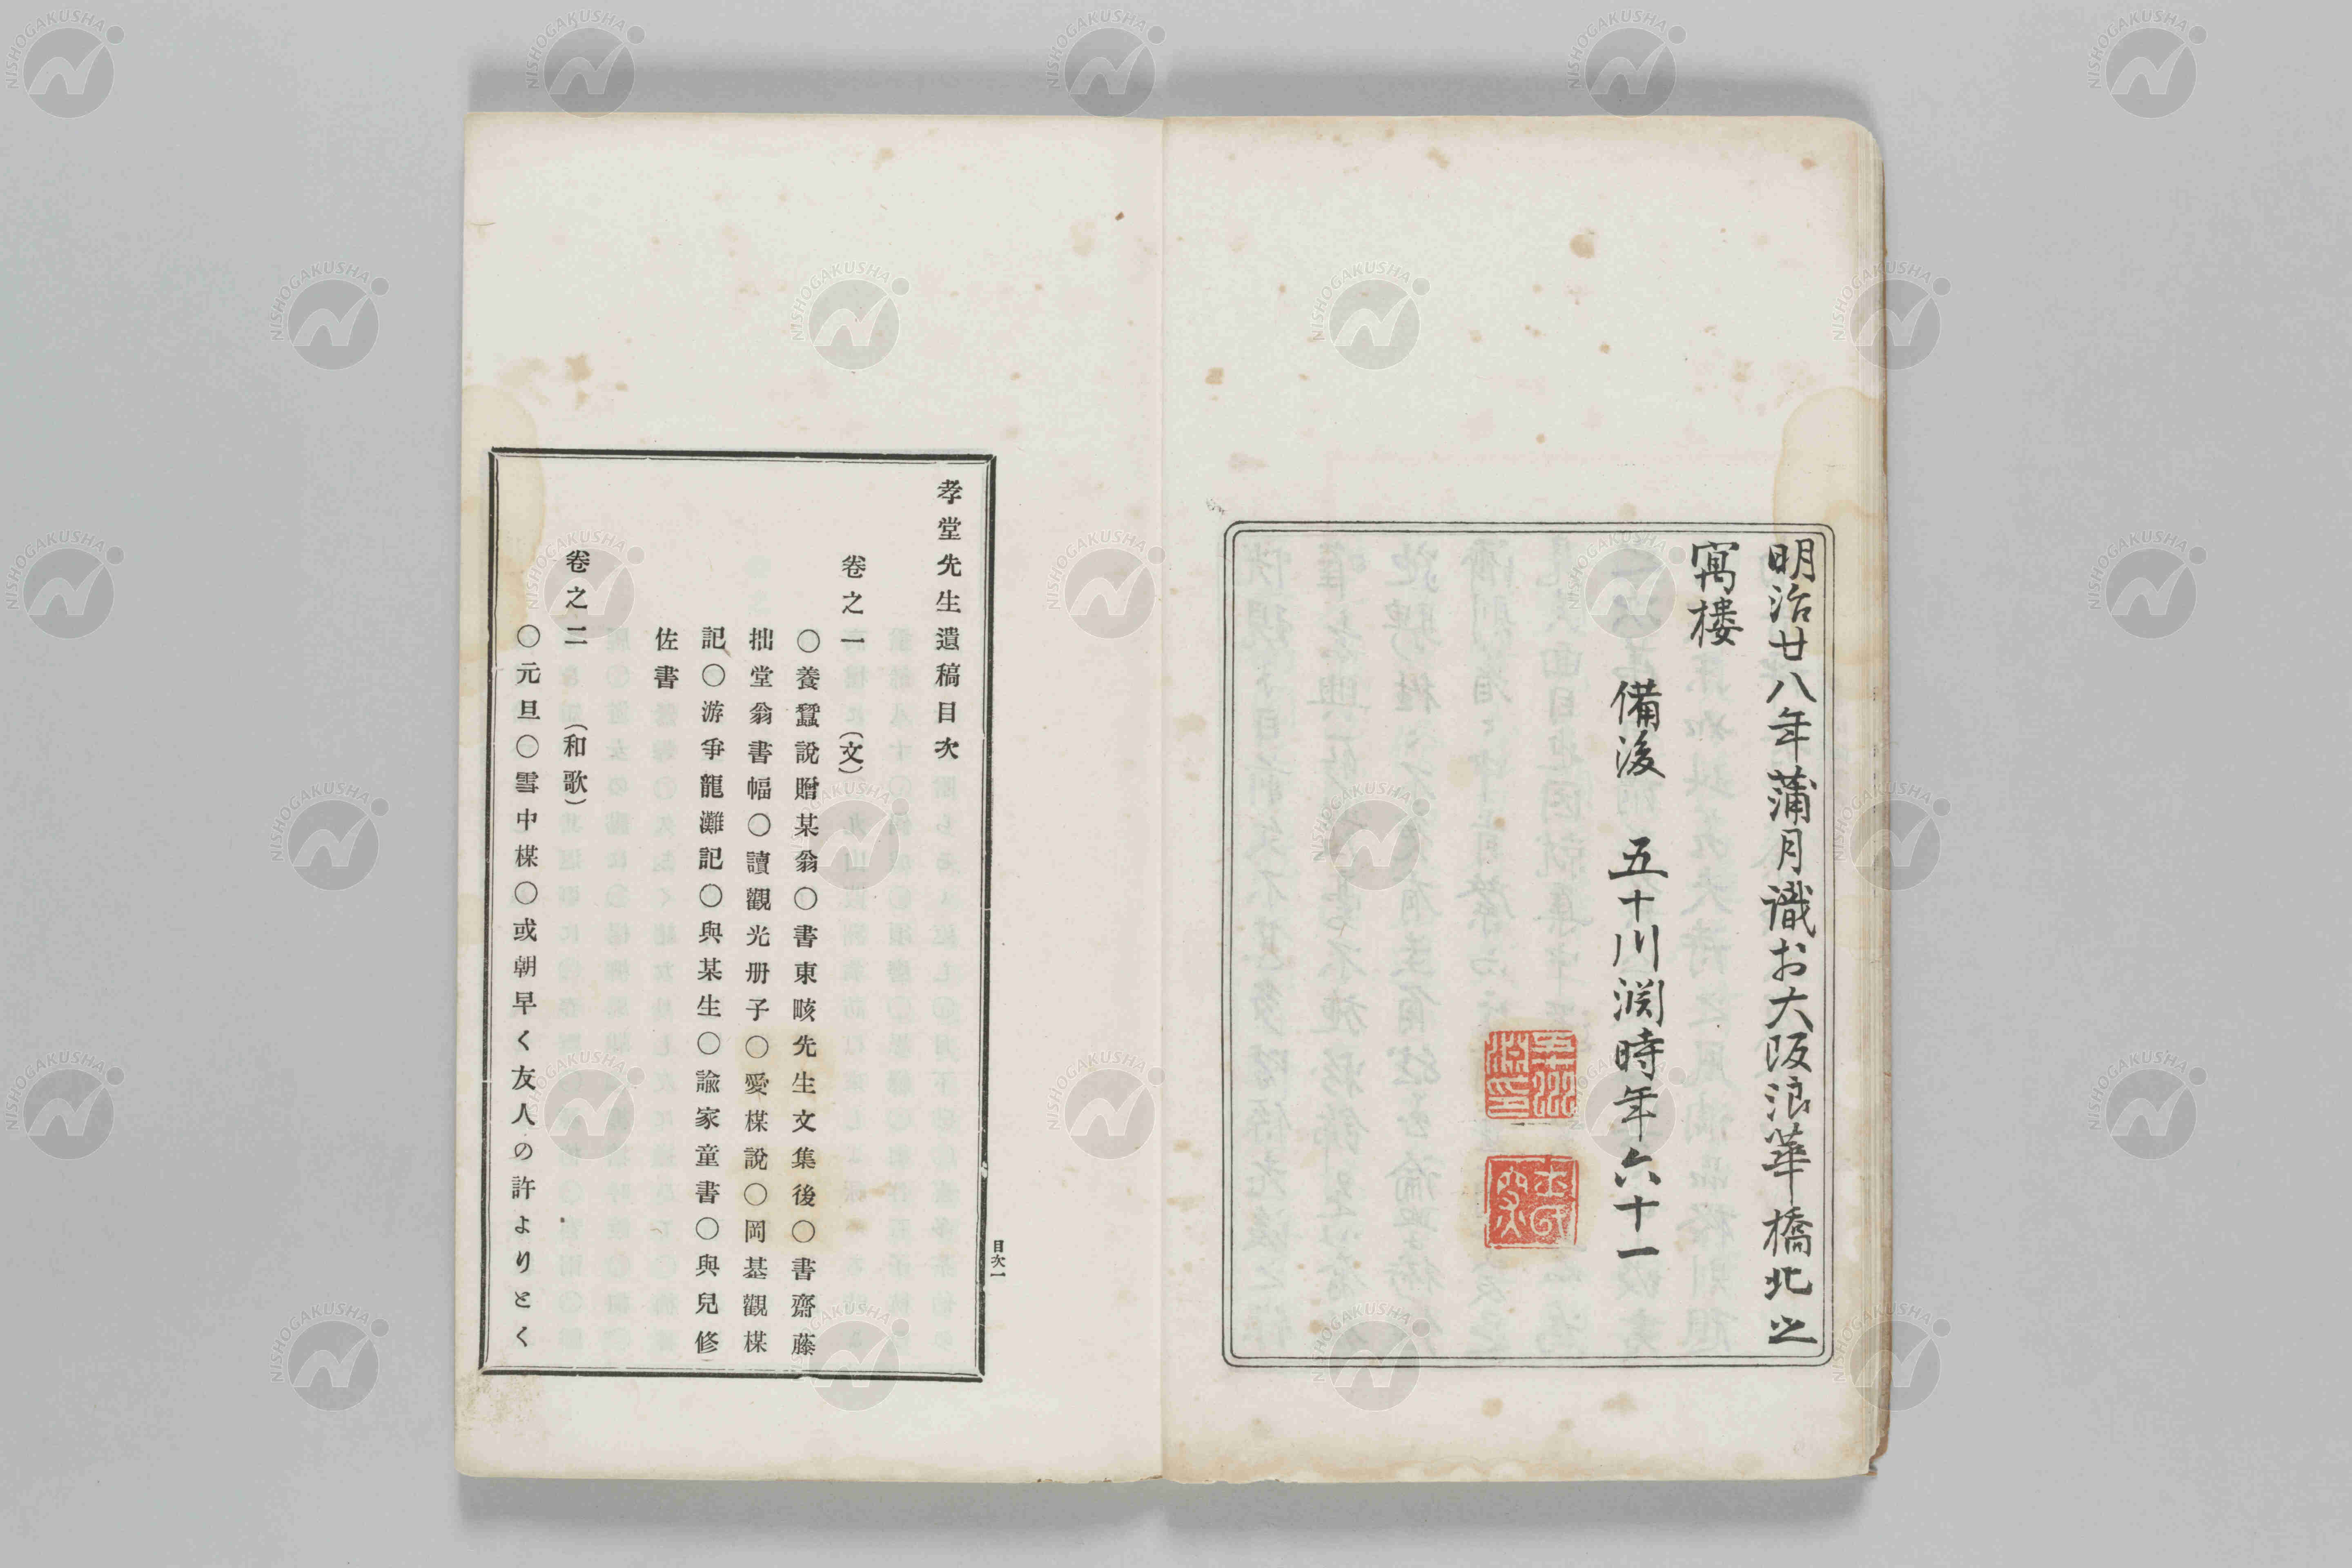 明治廿八年蒲月識於大阪浪華橋北之
寓楼
備後 五十川淵時年六十一
孝堂先生遺稿目次
卷之一 (文)
〇養蠶說贈某翁〇書東畡先生文集後〇書齋藤
拙堂翁書幅〇讀觀光册子〇愛楳說〇岡基觀楳
記〇游爭龍灘記〇與某生〇諭家童書〇與兒修
佐書
卷之二 (和歌)
〇元旦〇雪中楳〇或朝早く友人の許よりとく
目次一
NISHOGAKUSHA